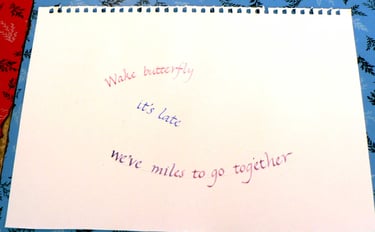 Wake butterfly
it's late
we've miles to go together